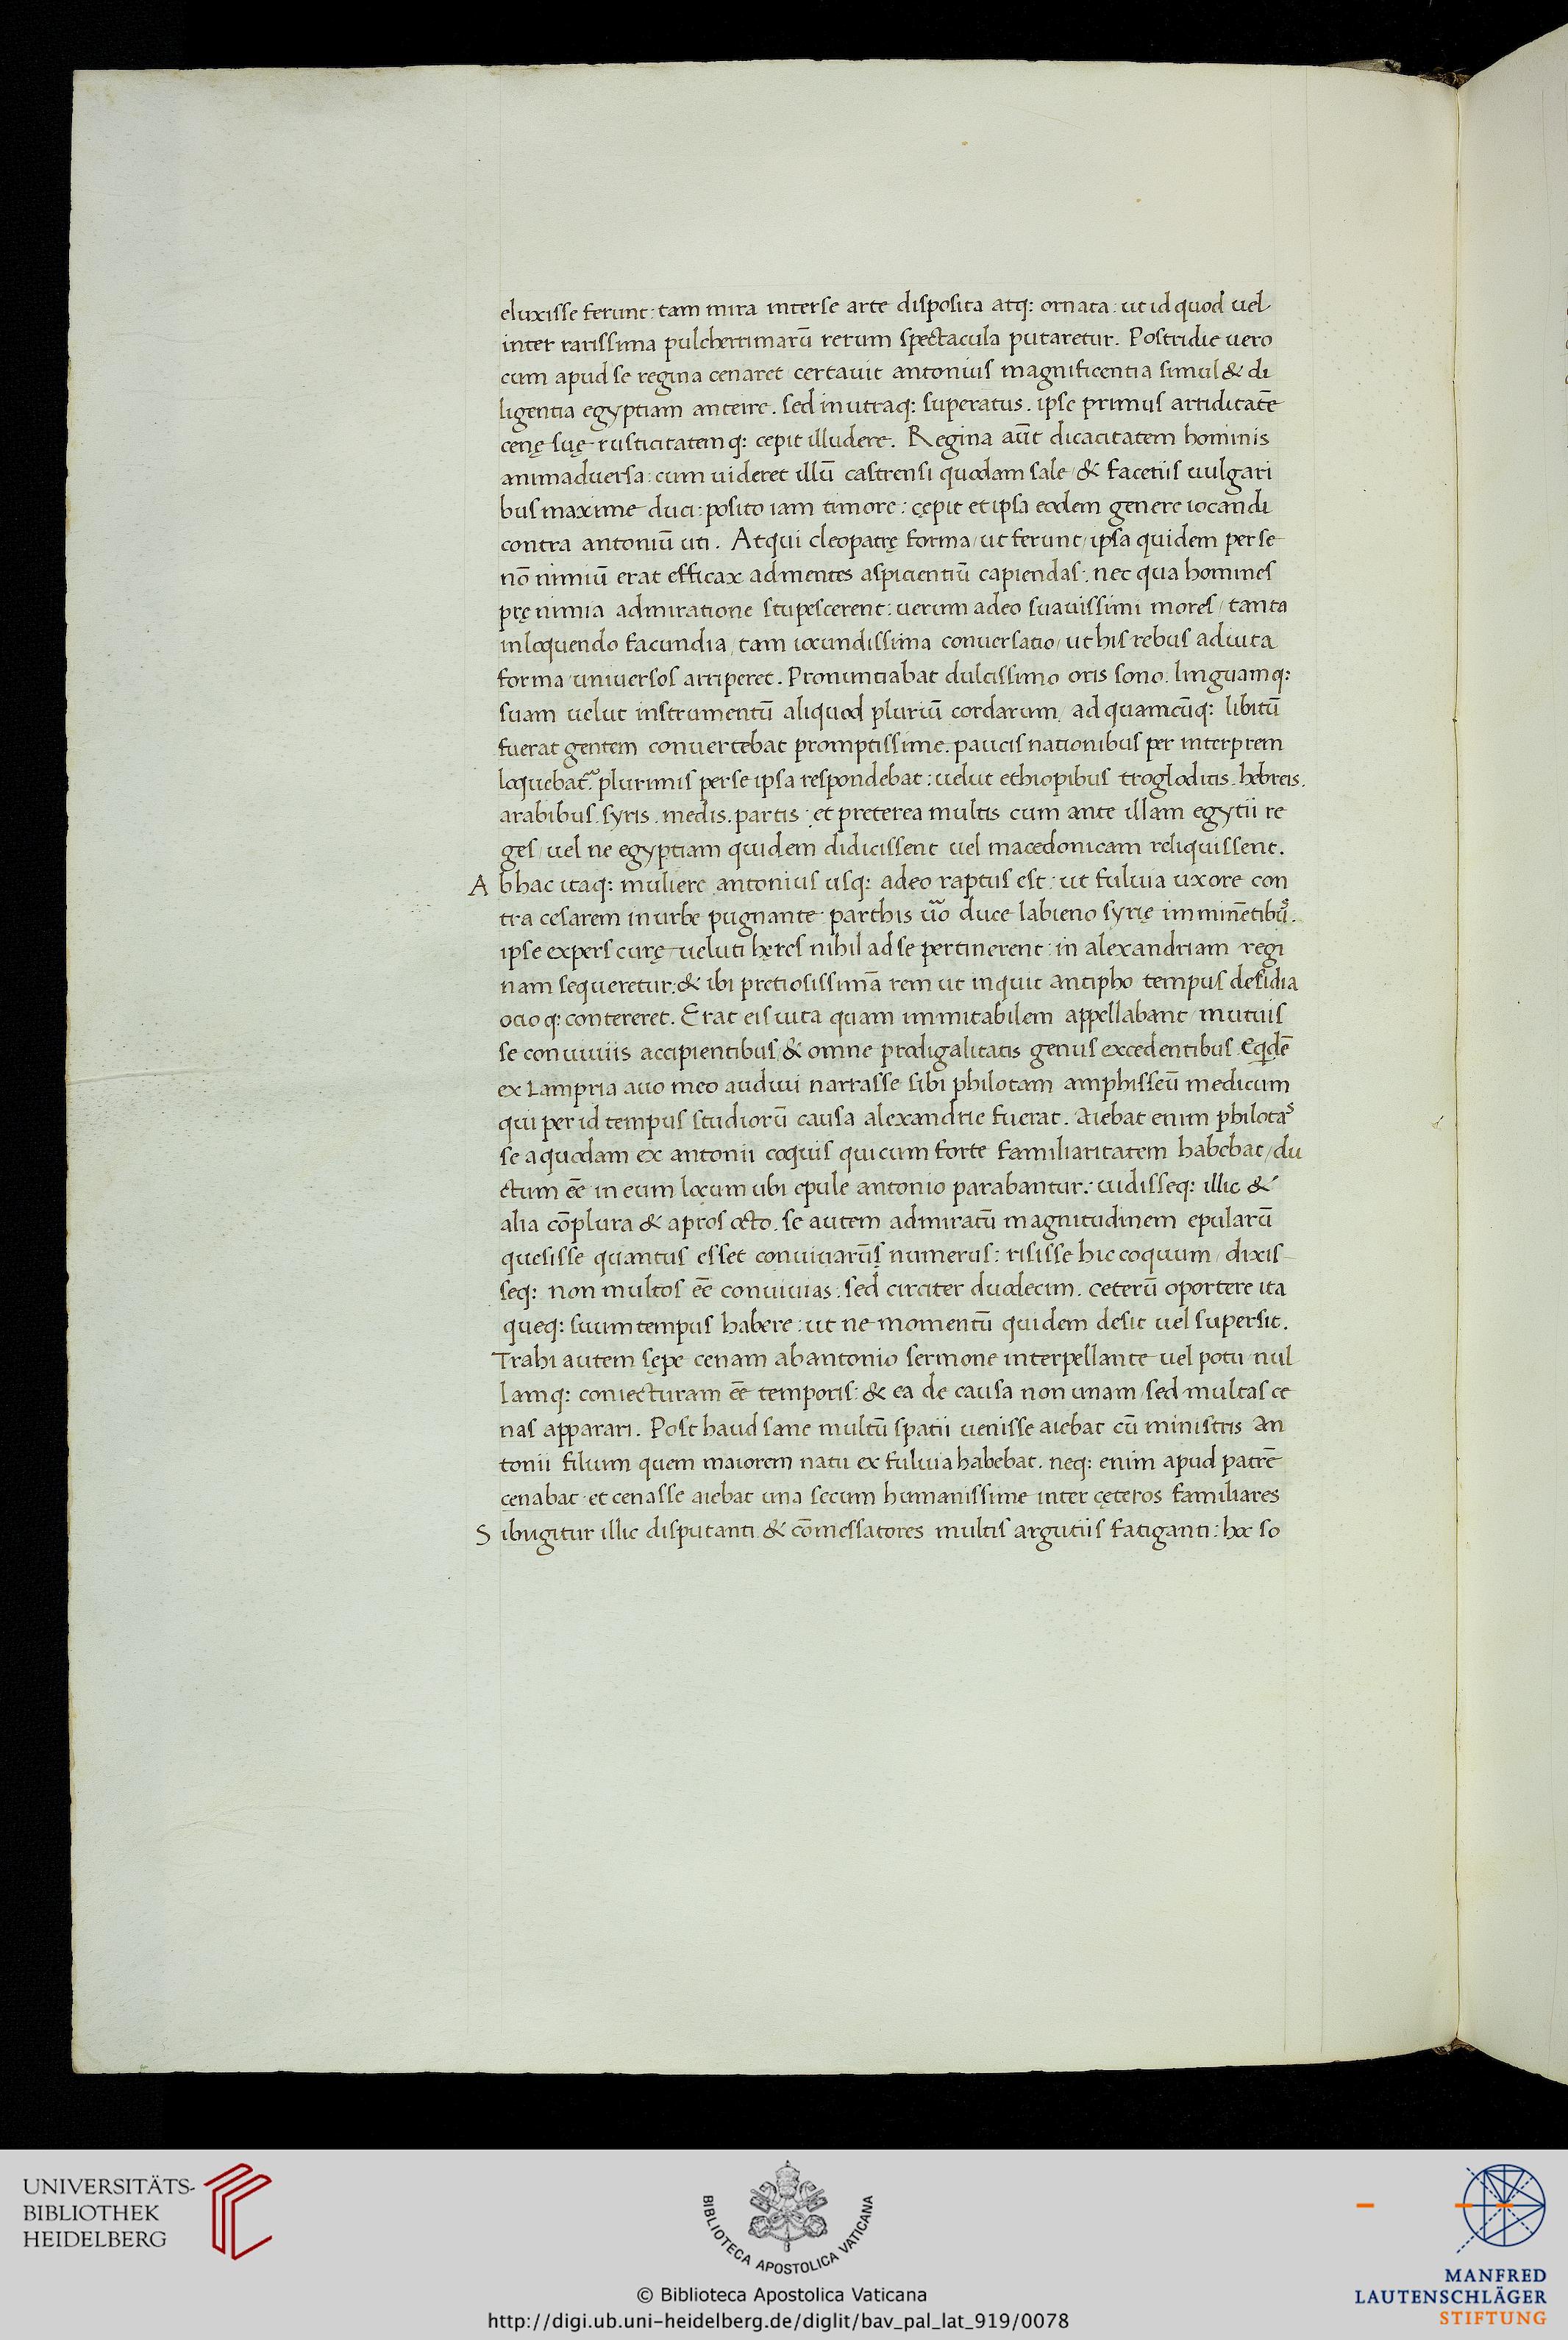 eluxisse ferunt: tam mira interse arte disposita atq: ornata. ut id quod uel
inter rarissima pulcherrimarū rerum spectacula putaretur. Postridie uero
cum apud se regina cenaret certauit antonius magnificentia simul & di
ligentia egyptiam anteire. sed in utraq: superatus. ipse primus ariditatē
cenę suę rusticitatemq: cepit illudere. Regina aūt dicacitatem hominis
animaduersa: cum uideret illū castrensi quodam sale & facetiis uulgari
bus maxime duci: posito iam timore: cępit et ipsa eodem genere iocandi
contra antoniū uti. Atqui cleopatrę forma/ ut ferunt/ ipsa quidem per se
nō nimiū erat efficax ad mentes aspicientiū capiendas: nec qua homines
prę nimia admiratione stupescerent: uerum adeo suauissimi mores/ tanta
in loquendo facundia/ tam iocundissima conuersatio/ ut his rebus adiuta
forma uniuersos arriperet. Pronuntiabat dulcissimo oris sono. linguamq:
suam uelut instrumentū aliquod pluriū cordarum/ ad quamcūq: libitū
fuerat gentem conuertebat promptissime. paucis nationibus per interprem
loquebat᷑ plurimis per se ipsa respondebat: uelut ethiopibus trogloditis. hebreis.
arabibus. syris. medis. partis: et preterea multis cum ante illam egytii re
ges/ uel ne egyptiam quidem didicissent uel macedonicam reliquissent.
A bhac itaq: muliere antonius usq: adeo raptus est: ut fuluia uxore con
tra cesarem in urbe pugnante parthis ūo duce labieno syrię imminētibus.
ipse expers curę ueluti hęres nihil ad se pertinerent: in alexandriam regi
nam sequeretur: & ibi pretiosissimā rem ut inquit antipho tempus desidia
ocioq: contereret. Erat eis uita quam inmitabilem appellabant/ mutuis
se conuiuiis accipientibus/ & omne prodigalitatis genus excedentibus. Eqidē
ex Lampria auo meo audiui narrasse sibi philotam amphisseū medicum
qui per id tempus studiorū causa alexandrie fuerat. Aiebat enim philotas
se a quodam ex antonii coquis quicum forte familiaritatem habebat/ du
ctum eē in eum locum ubi epule antonio parabantur: uidisseq: illic &
alia cōplura & apros octo. se autem admiratū magnitudinem epularū
quesisse quantus esset conuiuarūs numerus: risisse hic coquum/ dixis-
seq: non multos eē conuiuias. sed circiter duodecim. ceterū oportere ita
queq: suum tempus habere: ut ne momentū quidem desit uel supersit.
Trahi autem sępe cenam ab antonio sermone interpellante uel potu nul
lamq: coniecturam eē temporis: & ea de causa non unam sed multas ce
nas apparari. Post haud sane multū spatii uenisse aiebat cū ministris an
tonii filium quem maiorem natu ex fuluia habebat. neq: enim apud patrē
cenabat et cenasse aiebat una secum humanissime inter cęteros familiares
S ibugitur illic disputanti & cōmessatores multis argutiis fatiganti: hoc so
UNIVERSITÄTS-
BIBLIOTHEK
HEIDELBERG
BIBLIOTECA APOSTOLICA VATICANA
© Biblioteca Apostolica Vaticana
http://digi.ub.uni-heidelberg.de/diglit/bav_pal_lat_919/0078
MANFRED
LAUTENSCHLÄGER
STIFTUNG